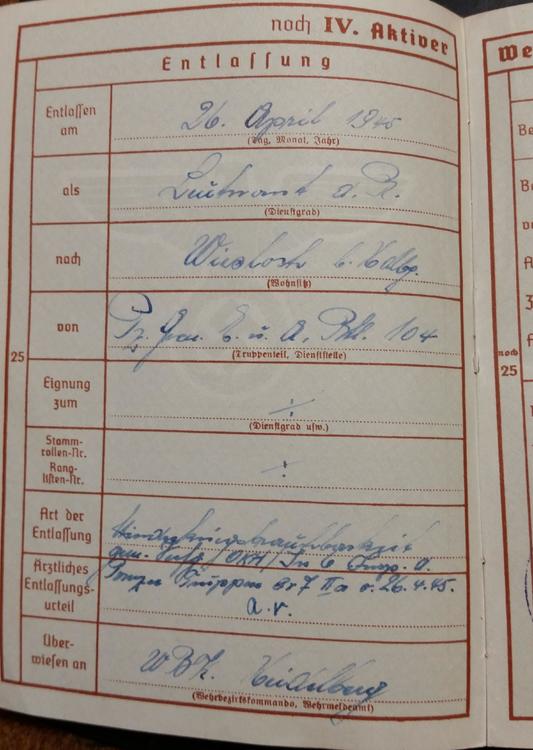 noch IV. Aktiver
Entlassung
Entlassen am
26. April 1945
(Tag, Monat, Jahr)
als
Leutnant d. R.
(Dienstgrad)
nach
Wiesloch b. Hdlbg.
(Wohnsitz)
von
Pz. Gren. E. u. A. Btl. 104
(Truppenteil, Dienststelle)
25
Eignung zum
./.
(Dienstgrad usw.)
Stamm-
rollen-Nr.
Rang-
listen-Nr.
./.
Art der
Entlassung
gem. Verfg. OKH / In 6 Insp. d.
Ärztliches
Entlassungs-
urteil
Panzer Truppen IIa v. 26.4.45.
a.v.
Über-
wiesen an
W B K. Heidelberg
(Wehrbezirkskommando, Wehrmeldeamt)
We
noch
25